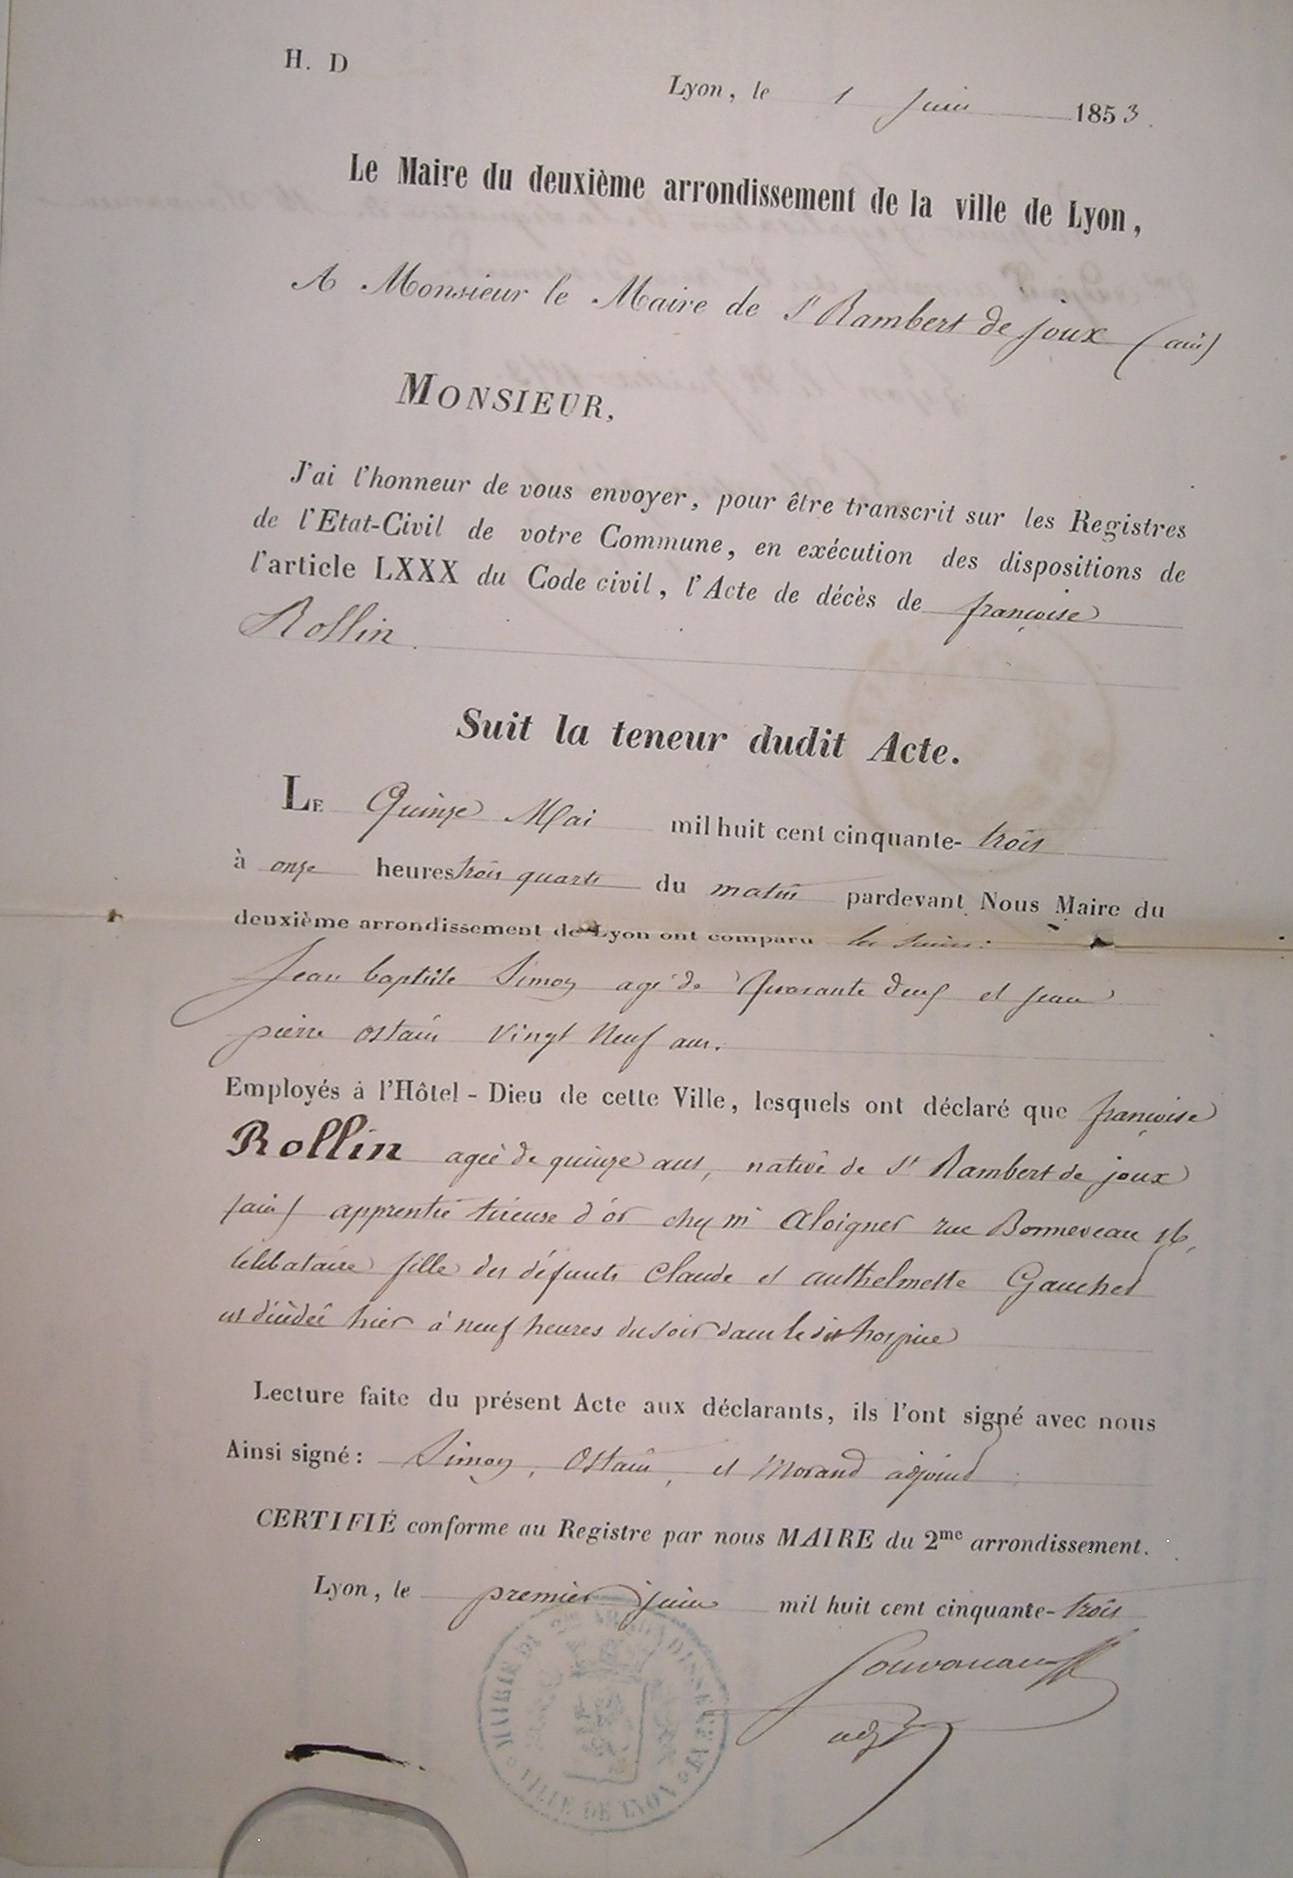 H. D
Lyon, le 1 juin 1853.
Le Maire du deuxième arrondissement de la ville de Lyon,
A Monsieur le Maire de St Rambert de joux (ain)
MONSIEUR,
J'ai l'honneur de vous envoyer, pour être transcrit sur les Registres
de l'Etat-Civil de votre Commune, en exécution des dispositions de
l'article LXXX du Code civil, l'Acte de décès de françoise
Rollin.
Suit la teneur dudit Acte.
LE Quinze Mai mil huit cent cinquante-trois
à onze heures trois quarts du matin pardevant Nous Maire du
deuxième arrondissement de Lyon ont comparu les sieurs:
Jean baptiste Simon agé de Quarante deux et jean
pierre Ostain Vingt Neuf ans.
Employés à l'Hôtel-Dieu de cette Ville, lesquels ont déclaré que françoise
Rollin ageé de quinze ans, native de St Rambert de joux
(ain) apprentie tireuse d'or chez mr Aloigner rue Bonneveau 16,
célibataire fille des défunts Claude et anthelmette Gauched
est décédeé hier à neuf heures du soir dans le dit hospice
Lecture faite du présent Acte aux déclarants, ils l'ont signé avec nous
Ainsi signé: Simon, Ostain, et Morand adjoint
CERTIFIÉ conforme au Registre par nous MAIRE du 2me arrondissement.
Lyon, le premier juin mil huit cent cinquante-trois
adjt
MAIRIE DU 2me ARRONDISSEMENT
VILLE DE LYON